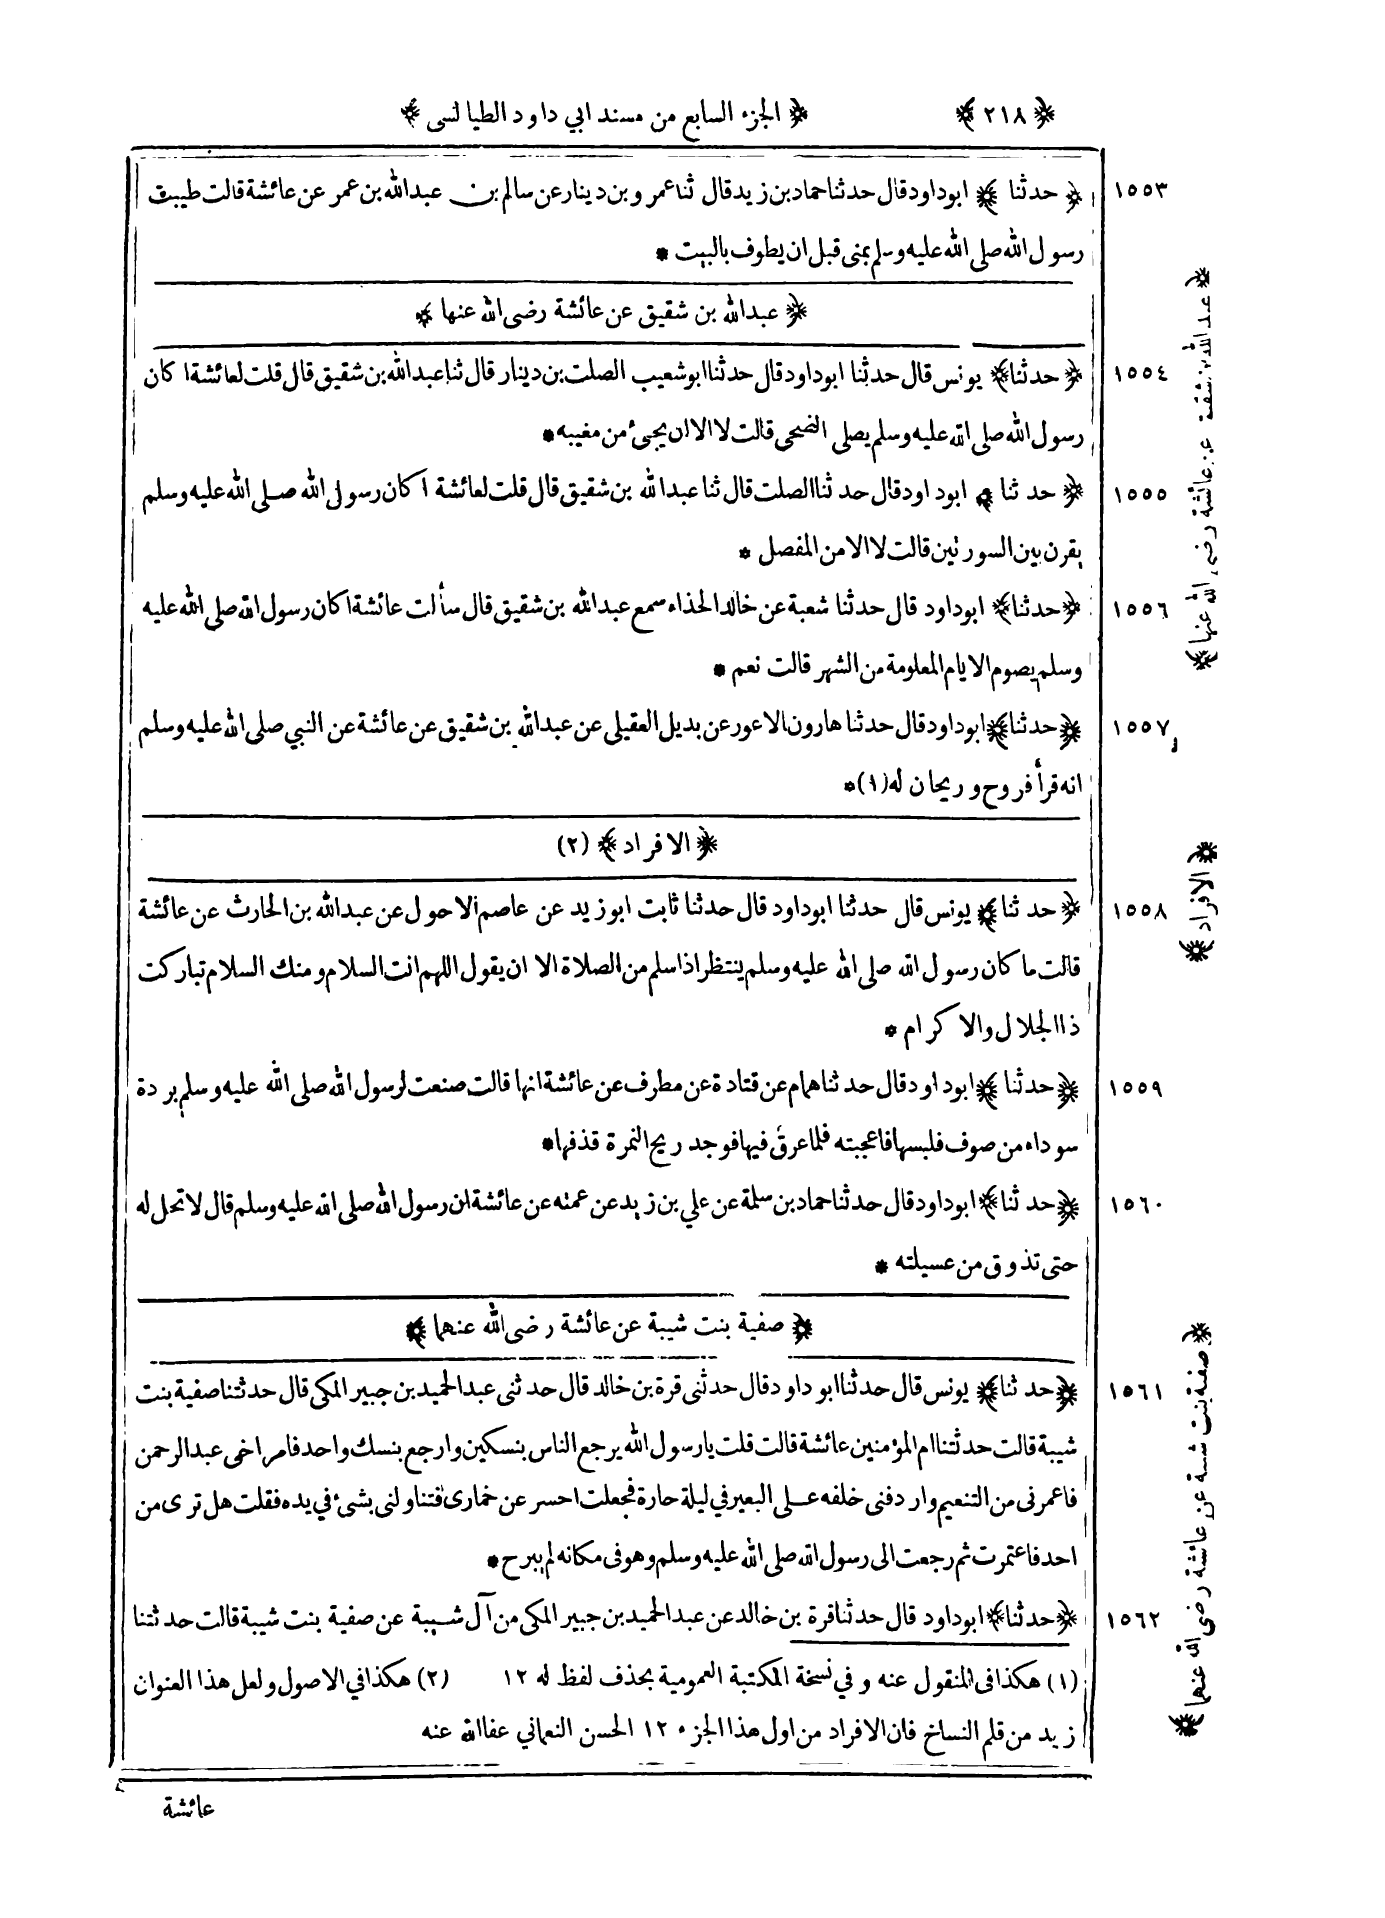 ﴿٢١٨﴾ ﴿الجزء السابع من مسند ابي داود الطيالسى﴾
١٥٥٣ ﴿حدثنا﴾ ابوداود قال حدثنا حماد بن زيد قال ثنا عمرو بن دينار عن سالم بن عبدالله بن عمر عن عائشة قالت طيبت
رسول الله صلى الله عليه وسلم بمنى قبل ان يطوف بالبيت *
﴿عبدالله بن شقيق عن عائشة رضى الله عنها﴾
١٥٥٤ ﴿حدثنا﴾ يونس قال حدثنا ابوداود قال حدثنا ابوشعيب الصلت بن دينار قال ثنا عبدالله بن شقيق قال قلت لعائشة اكان
رسول الله صلى الله عليه وسلم يصلى الضحى قالت لا الا ان يجىء من مغيبه *
١٥٥٥ ﴿حدثنا﴾ ابوداود قال حدثنا الصلت قال ثنا عبدالله بن شقيق قال قلت لعائشة اكان رسول الله صلى الله عليه وسلم
يقرن بين السورتين قالت لا الا من المفصل *
١٥٥٦ ﴿حدثنا﴾ ابوداود قال حدثنا شعبة عن خالد الحذاء سمع عبدالله بن شقيق قال سألت عائشة اكان رسول الله صلى الله عليه
وسلم يصوم الايام المعلومة من الشهر قالت نعم *
١٥٥٧ ﴿حدثنا﴾ ابوداود قال حدثنا هارون الاعور عن بديل العقيلى عن عبدالله بن شقيق عن عائشة عن النبي صلى الله عليه وسلم
انه قرأ فروح وريحان له (١) *
﴿الافراد﴾ (٢)
١٥٥٨ ﴿حدثنا﴾ يونس قال حدثنا ابوداود قال حدثنا ثابت ابوزيد عن عاصم الاحول عن عبدالله بن الحارث عن عائشة
قالت ما كان رسول الله صلى الله عليه وسلم ينتظر اذا سلم من الصلاة الا ان يقول اللهم انت السلام ومنك السلام تباركت
ذا الجلال والاكرام *
١٥٥٩ ﴿حدثنا﴾ ابوداود قال حدثنا همام عن قتادة عن مطرف عن عائشة انها قالت صنعت لرسول الله صلى الله عليه وسلم بردة
سوداء من صوف فلبسها فاعجبته فلما عرق فيها فوجد ريح النمرة قذفها *
١٥٦٠ ﴿حدثنا﴾ ابوداود قال حدثنا حماد بن سلمة عن علي بن زيد عن عمته عن عائشة ان رسول الله صلى الله عليه وسلم قال لا تحل له
حتى تذوق من عسيلته *
﴿صفية بنت شيبة عن عائشة رضى الله عنهما﴾
١٥٦١ ﴿حدثنا﴾ يونس قال حدثنا ابوداود قال حدثنى قرة بن خالد قال حدثنى عبدالحميد بن جبير المكى قال حدثتنا صفية بنت
شيبة قالت حدثتنا ام المؤمنين عائشة قالت قلت يا رسول الله يرجع الناس بنسكين وارجع بنسك واحد فامر اخى عبدالرحمن
فاعمرنى من التنعيم واردفنى خلفه على البعير في ليلة حارة فجعلت احسر عن خمارى فتناولنى بشىء في يده فقلت هل ترى من
احد فاعتمرت ثم رجعت الى رسول الله صلى الله عليه وسلم وهو فى مكانه لم يبرح *
١٥٦٢ ﴿حدثنا﴾ ابوداود قال حدثنا قرة بن خالد عن عبدالحميد بن جبير المكى من آل شيبة عن صفية بنت شيبة قالت حدثتنا
(١) هكذا فى المنقول عنه وفي نسخة المكتبة العمومية بحذف لفظ له ١٢ (٢) هكذا في الاصول ولعل هذا العنوان
زيد من قلم النساخ فان الافراد من اول هذا الجزء ١٢ الحسن النعماني عفا الله عنه
عائشة
﴿عبدالله بن شقيق عن عائشة رضى الله عنها﴾
﴿الافراد﴾
﴿صفية بنت شيبة عن عائشة رضى الله عنهما﴾